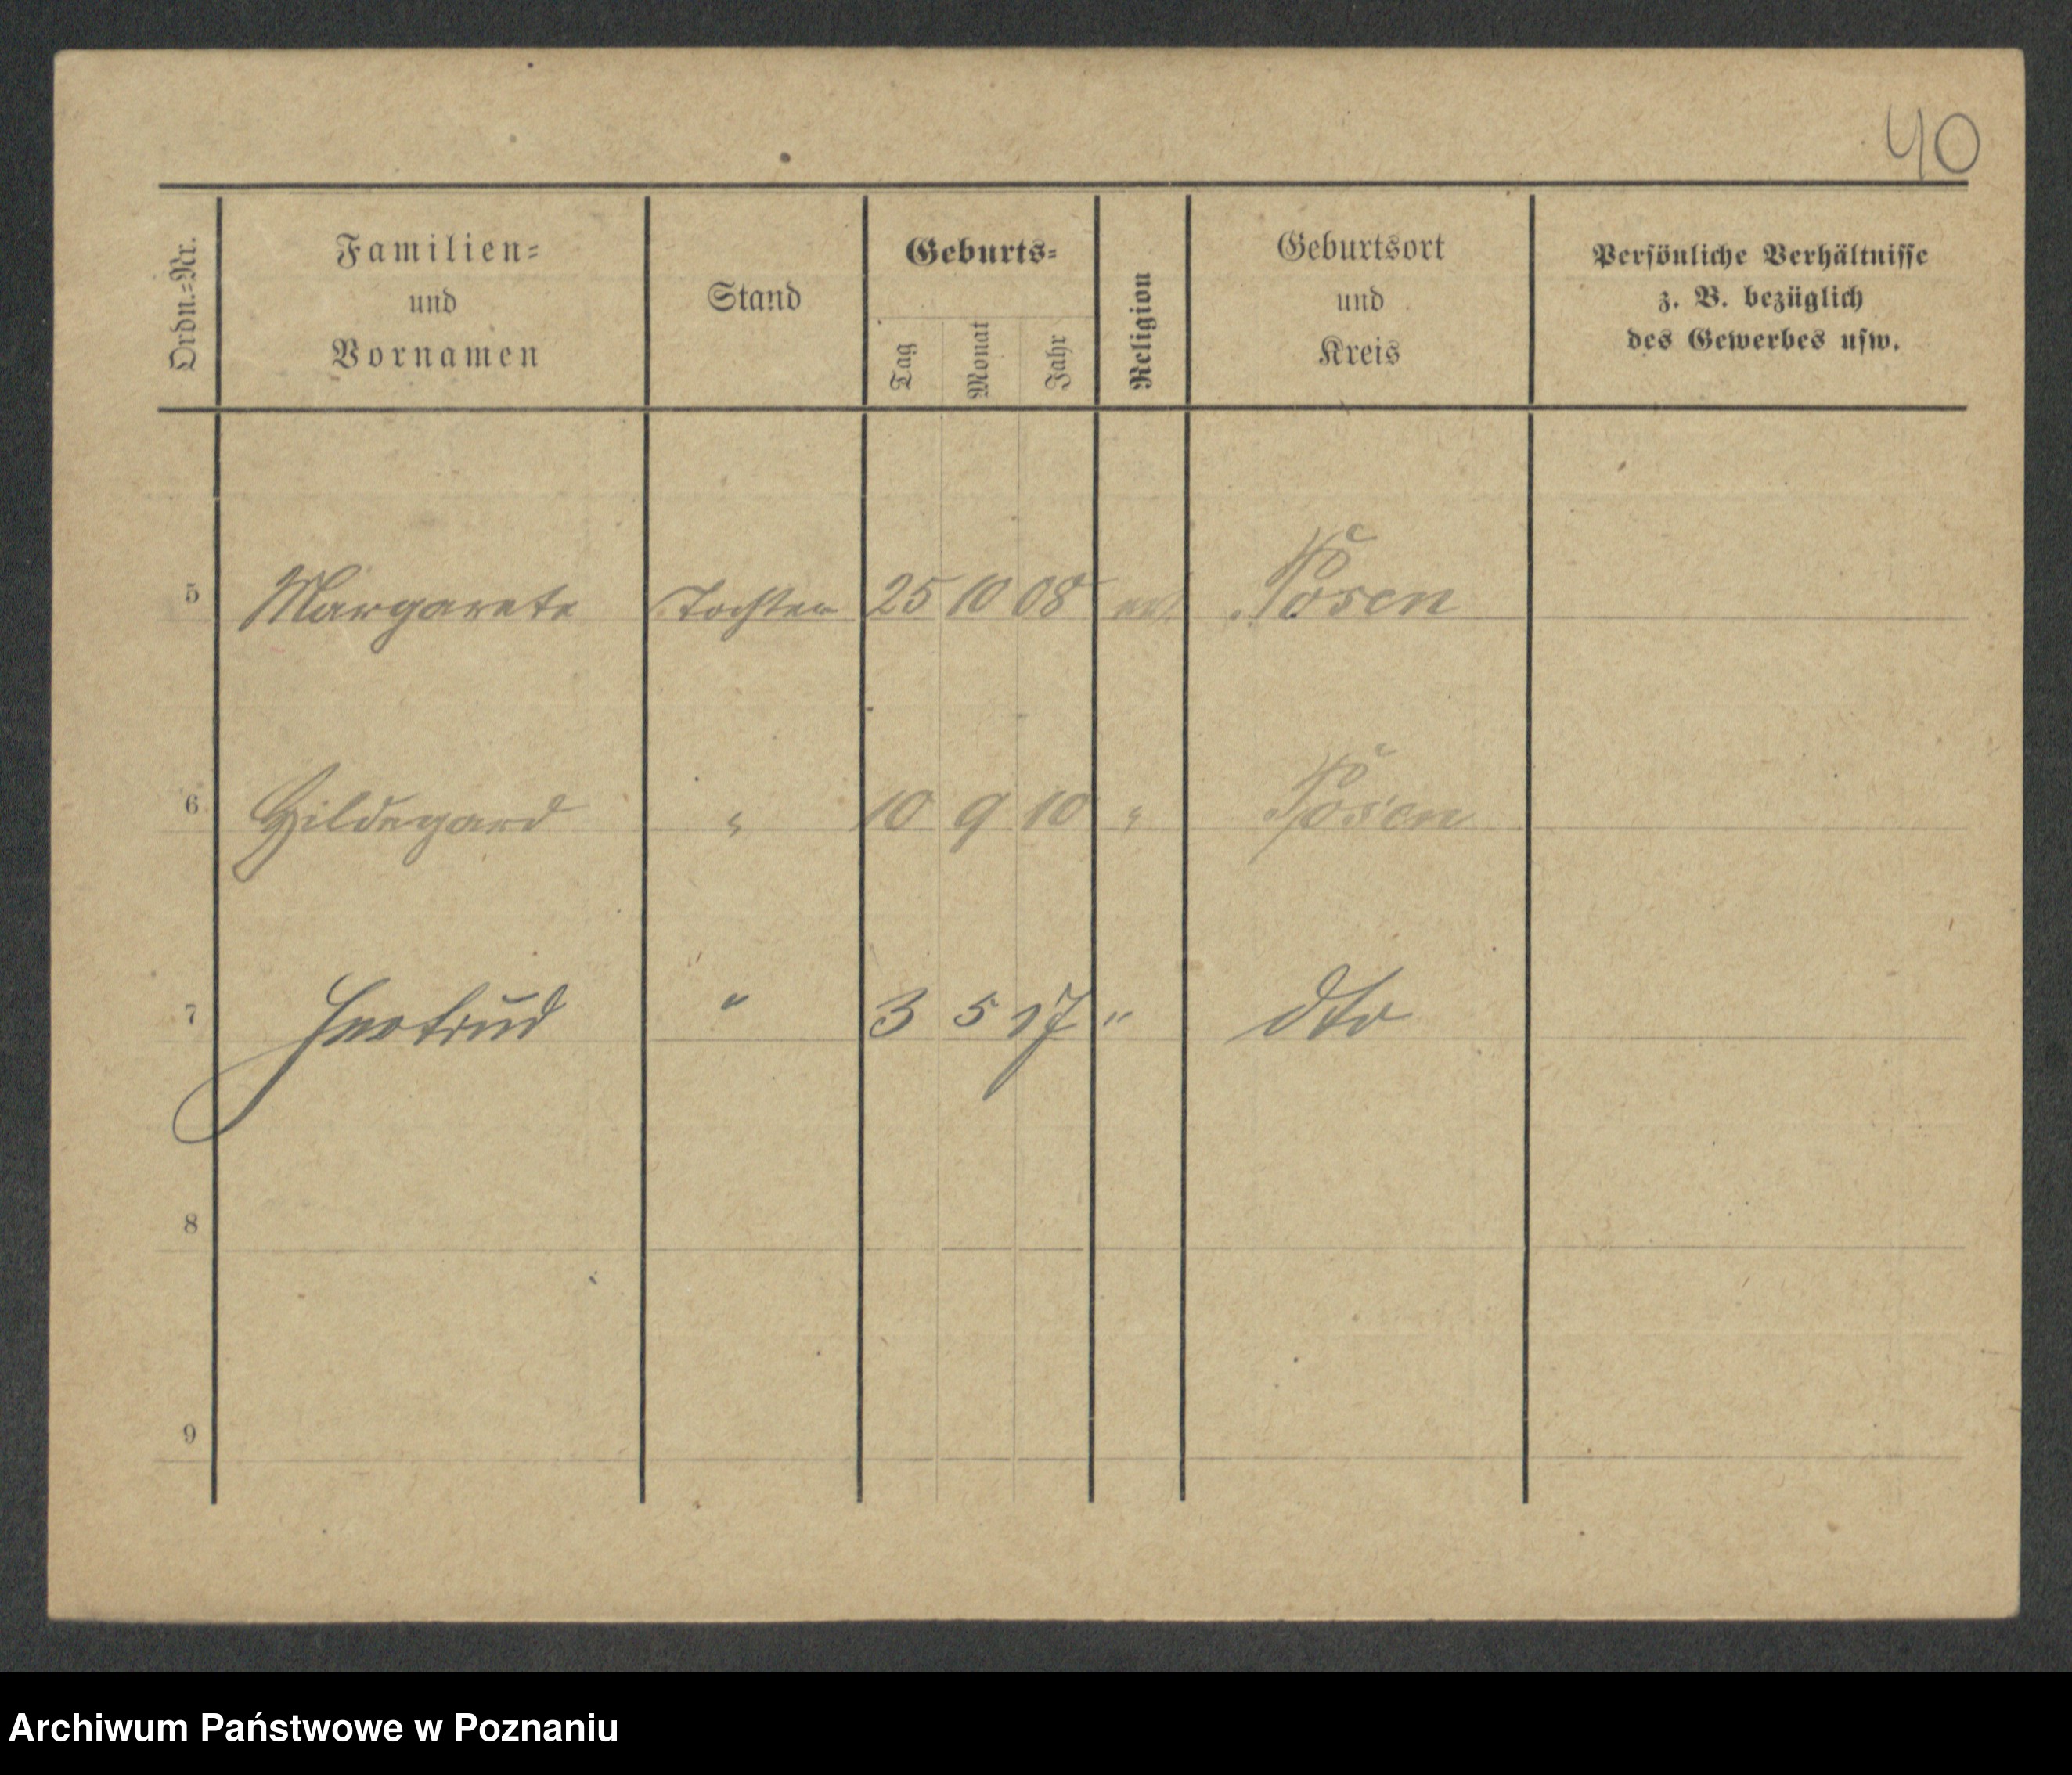 40
Ordn.=Nr.
Familien=
und
Vornamen
Stand
Geburts=
Tag
Monat
Jahr
Religion
Geburtsort
und
Kreis
Persönliche Verhältnisse
z. B. bezüglich
des Gewerbes usw.
5 Margarete Tochter 25 10 08 Posen
6 Hildegard " 10 9 10 " Posen
7 Gertrud " 3 5 17 " dto
8
9
Archiwum Państwowe w Poznaniu